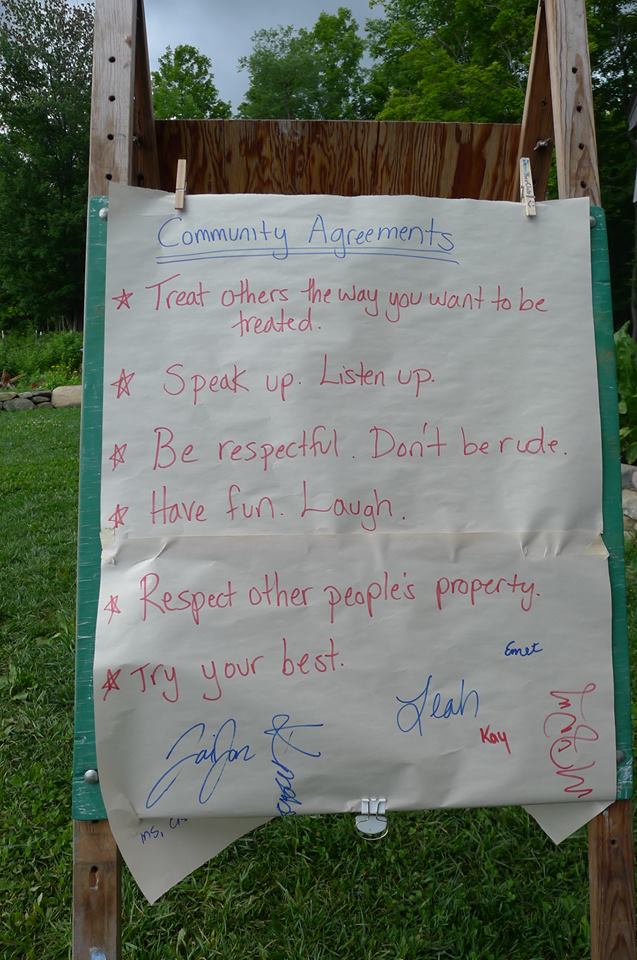 Community Agreements
☆ Treat others the way you want to be
treated.
☆ Speak up. Listen up.
☆ Be respectful. Don't be rude.
☆ Have fun. Laugh.
☆ Respect other people's property.
☆ Try your best.
Emet
Leah
Kay
ms.